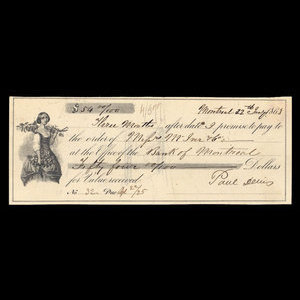 $54 00/100 Montreal 22nd
Three Months after date I promise to pay to
the order of Messrs
at the Office of the Bank of Montreal
Fifty four /100 Dollars
for Value received
No. 32 Paul